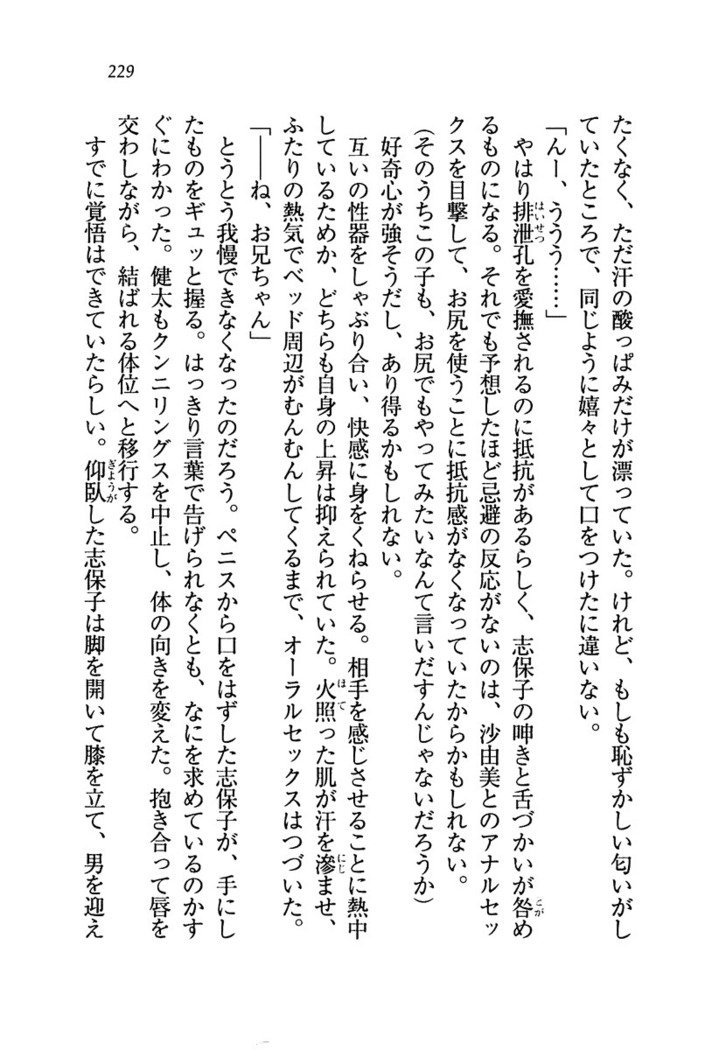 229
たくなく、ただ汗の酸っぱみだけが漂っていた。けれど、もしも恥ずかしい匂いがし
ていたところで、同じように嬉々として口をつけたに違いない。
「んー、ううう……」
やはり排泄孔を愛撫されるのに抵抗があるらしく、志保子の呻きと舌づかいが咎め
るものになる。それでも予想したほど忌避の反応がないのは、沙由美とのアナルセッ
クスを目撃して、お尻を使うことに抵抗感がなくなっていたからかもしれない。
(そのうちこの子も、お尻でもやってみたいなんて言いだすんじゃないだろうか)
好奇心が強そうだし、あり得るかもしれない。
互いの性器をしゃぶり合い、快感に身をくねらせる。相手を感じさせることに熱中
しているためか、どちらも自身の上昇は抑えられていた。火照った肌が汗を滲ませ、
ふたりの熱気でベッド周辺がむんむんしてくるまで、オーラルセックスはつづいた。
「――ね、お兄ちゃん」
とうとう我慢できなくなったのだろう。ペニスから口をはずした志保子が、手にし
たものをギュッと握る。はっきり言葉で告げられなくとも、なにを求めているのかす
ぐにわかった。健太もクンニリングスを中止し、体の向きを変えた。抱き合って唇を
交わしながら、結ばれる体位へと移行する。
すでに覚悟はできていたらしい。仰臥した志保子は脚を開いて膝を立て、男を迎え